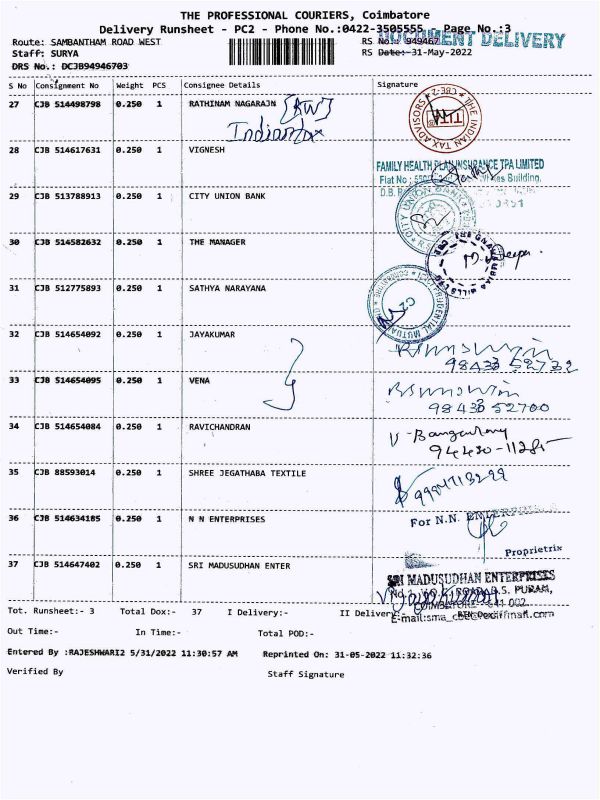 THE PROFESSIONAL COURIERS, Coimbatore
Delivery Runsheet - PC2 - Phone No.:0422-3505555 - Page No.:3
DOCUMENT DELIVERY
Route: SAMBANTHAM ROAD WEST RS No.: 949467
Staff: SURYA RS Date:-31-May-2022
DRS No.: DCJB94946703
S No Consignment No Weight PCS Consignee Details Signature
27 CJB 514498798 0.250 1 RATHINAM NAGARAJN
THE INDIAN TAX ADVISORS CBE-2
28 CJB 514617631 0.250 1 VIGNESH
FAMILY HEALTH PLAN INSURANCE TPA LIMITED
Flat No : Building.
D.B.
29 CJB 513788913 0.250 1 CITY UNION BANK
CITY UNION BANK
30 CJB 514582632 0.250 1 THE MANAGER
31 CJB 512775893 0.250 1 SATHYA NARAYANA
PRUDENTIAL MUTUAL
32 CJB 514654092 0.250 1 JAYAKUMAR
98433 52732
33 CJB 514654095 0.250 1 VENA
98433 52700
34 CJB 514654084 0.250 1 RAVICHANDRAN
94430-11285
35 CJB 88593014 0.250 1 SHREE JEGATHABA TEXTILE
36 CJB 514634185 0.250 1 N N ENTERPRISES
For N.N. ENTERPRISES
Proprietrix
37 CJB 514647402 0.250 1 SRI MADUSUDHAN ENTER
SRI MADUSUDHAN ENTERPRISES
R.S. PURAM,
COIMBATORE - 641 002.
Tot. Runsheet:- 3 Total Dox:- 37 I Delivery:- II Delivery:-
E-mail:sma_cbe@rediffmail.com
Out Time:- In Time:- Total POD:-
Entered By :RAJESHWARI2 5/31/2022 11:30:57 AM Reprinted On: 31-05-2022 11:32:36
Verified By Staff Signature